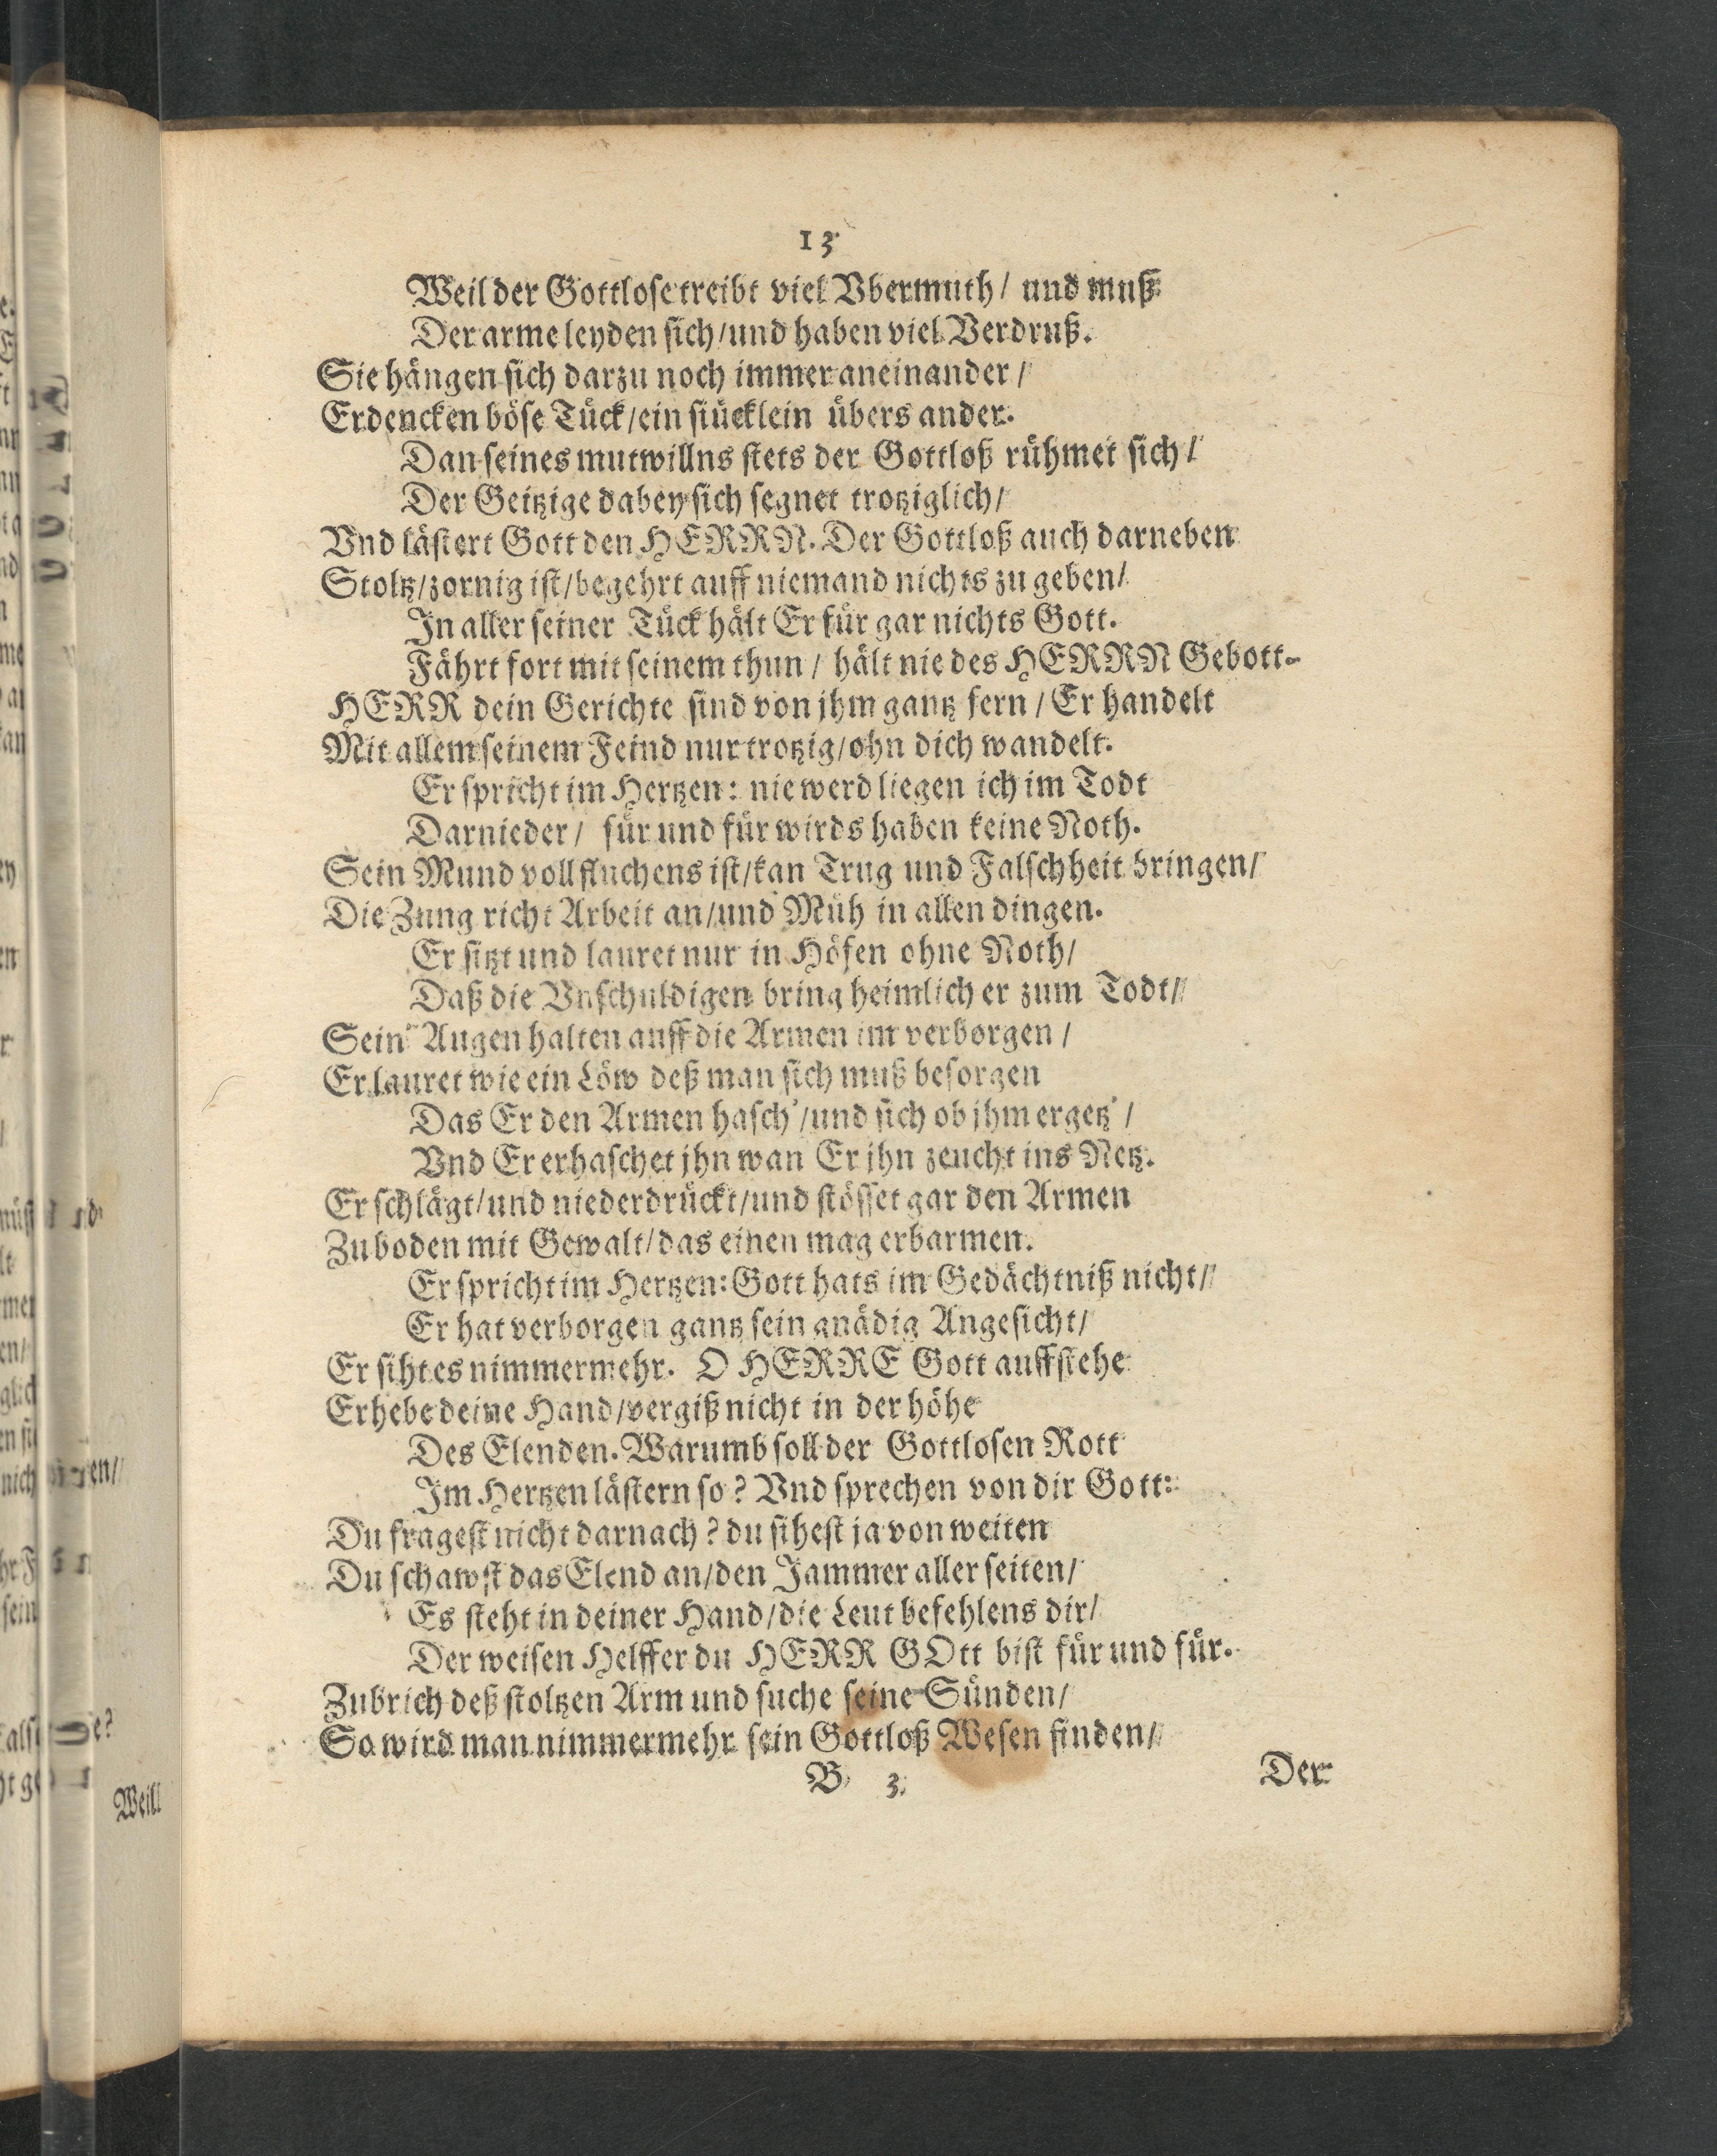 13
Weil der Gottlose treibt viel Vbermuth / und muß
Der arme leyden sich / und haben viel Verdruß.
Sie hängen sich darzu noch immer aneinander /
Erdencken böse Tück / ein stücklein übers ander.
Dan seines mutwillns stets der Gottloß rühmet sich /
Der Geitzige dabey sich segnet trotziglich /
Vnd lästert Gott den HERRN. Der Gottloß auch darneben
Stoltz / zornig ist / begehrt auff niemand nichts zu geben /
In aller seiner Tück hält Er für gar nichts Gott.
Fährt fort mit seinem thun / hält nie des HERRN Gebott.
HERR dein Gerichte sind von jhm gantz fern / Er handelt
Mit allem seinem Feind nur trotzig / ohn dich wandelt.
Er spricht im Hertzen: nie werd liegen ich im Todt
Darnieder / für und für wirds haben keine Noth.
Sein Mund voll fluchens ist / kan Trug und Falschheit bringen /
Die Zung richt Arbeit an / und Müh in allen dingen.
Er sitzt und lauret nur in Höfen ohne Noth /
Daß die Vnschuldigen bring heimlich er zum Todt /
Sein' Augen halten auff die Armen im verborgen /
Er lauret wie ein Löw deß man sich muß besorgen
Das Er den Armen hasch' / und sich ob jhm ergetz' /
Vnd Er erhaschet jhn wan Er jhn zeucht ins Netz.
Er schlägt / und niederdrückt / und stösset gar den Armen
Zu boden mit Gewalt / das einen mag erbarmen.
Er spricht im Hertzen: Gott hats im Gedächtniß nicht /
Er hat verborgen gantz sein gnädig Angesicht /
Er siht es nimmermehr. O HERRE Gott auffstehe
Erhebe deine Hand / vergiß nicht in der höhe
Des Elenden. Warumb soll der Gottlosen Rott
Im Hertzen lästern so? Vnd sprechen von dir Gott:
Du fragest nicht darnach? du sihest ja von weiten
Du schawst das Elend an / den Jammer aller seiten /
Es steht in deiner Hand / die Leut befehlens dir /
Der weisen Helffer du HERR GOtt bist für und für.
Zubrich deß stoltzen Arm und suche seine Sünden /
So wird man nimmermehr sein Gottloß Wesen finden /
B 3
Der
Weil